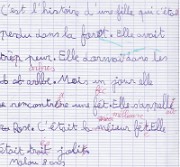 C'est l'histoire d'une fille qui c'était
perdu dans la forêt. Elle avait
trop peur. Elle dormait dans les
arbre. Mes un jour elle
a rencontrée une fée. Elle s'apellé
Rose. C'était la meilleur fée. Elle
était jolie